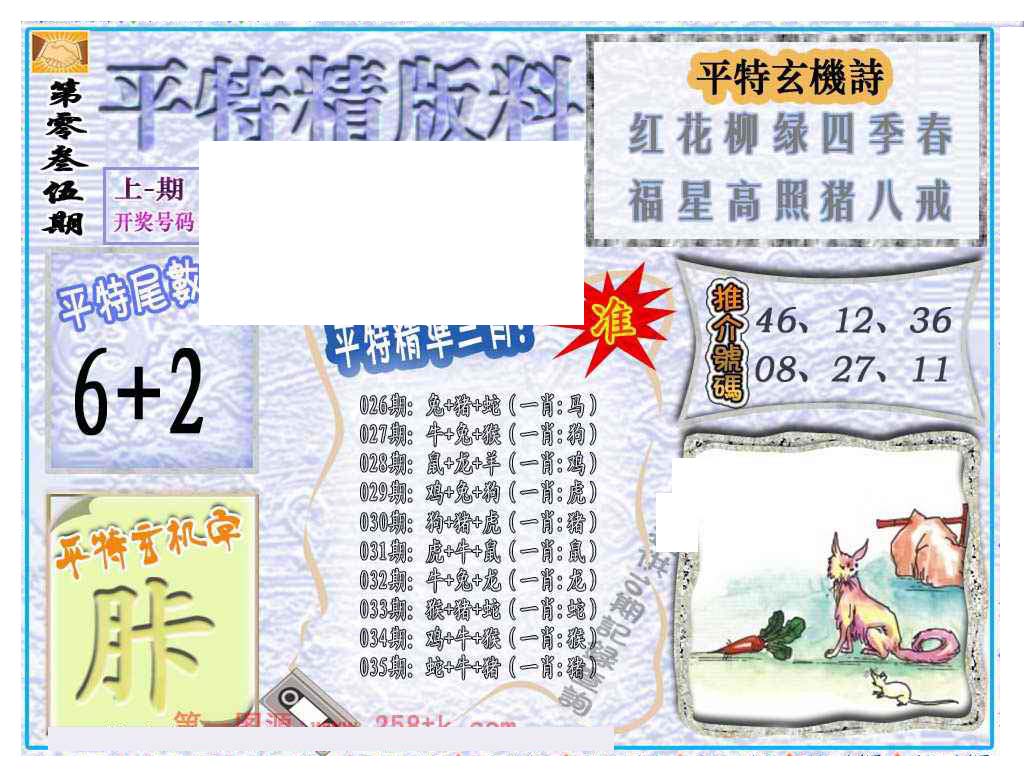 第零叁伍期
平特精版料
上-期
开奖号码
平特玄機詩
红花柳绿四季春
福星高照猪八戒
平特尾數
6+2
平特精準三肖!
准
推介號碼
46、12、36
08、27、11
026期: 兔+猪+蛇(一肖:马)
027期: 牛+兔+猴(一肖:狗)
028期: 鼠+龙+羊(一肖:鸡)
029期: 鸡+兔+狗(一肖:虎)
030期: 狗+猪+虎(一肖:猪)
031期: 虎+牛+鼠(一肖:鼠)
032期: 牛+兔+龙(一肖:龙)
033期: 猴+猪+蛇(一肖:蛇)
034期: 鸡+牛+猴(一肖:猴)
035期: 蛇+牛+猪(一肖:猪)
平特玄机字
供10期記錄查詢